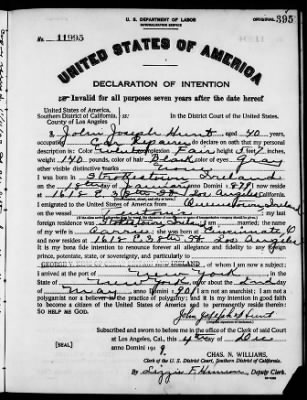 U. S. DEPARTMENT OF LABOR
NATURALIZATION SERVICE
ORIGINAL 395
No. 11995
UNITED STATES OF AMERICA
DECLARATION OF INTENTION
Invalid for all purposes seven years after the date hereof
United States of America,
Southern District of California,
County of Los Angeles
In the District Court of the United States.
I, John Joseph Hunt, aged 40 years,
occupation Car Repairer, do declare on oath that my personal
description is: Color White, complexion Fair, height 5 feet 7 inches,
weight 140 pounds, color of hair Black, color of eyes Gray
other visible distinctive marks
I was born in Ireland
on the 18th day of January, anno Domini 1879; I now reside
at 1615 E. 38th St. Los Angeles, California.
I emigrated to the United States of America from Queenstown, Ireland
on the vessel; my last
foreign residence was
my wife is Carrie; she was born at Cincinnati, O
and now resides at 1615 E 38th St Los Angeles
It is my bona fide intention to renounce forever all allegiance and fidelity to any foreign
prince, potentate, state, or sovereignty, and particularly to
of whom I am now a subject;
I arrived at the port of New York, in the
State of New York, on or about the 2nd day
of May, anno Domini 1901; I am not an anarchist; I am not a
polygamist nor a believer in the practice of polygamy; and it is my intention in good faith
to become a citizen of the United States of America and to permanently reside therein:
SO HELP ME GOD.
John Joseph Hunt
Subscribed and sworn to before me in the office of the Clerk of said Court
at Los Angeles, Cal., this 4th day of Dec
[SEAL]
anno Domini 1919.
CHAS. N. WILLIAMS,
Clerk of the U. S. District Court, Southern District of California.
By Lizzie F. Hannon, Deputy Clerk.